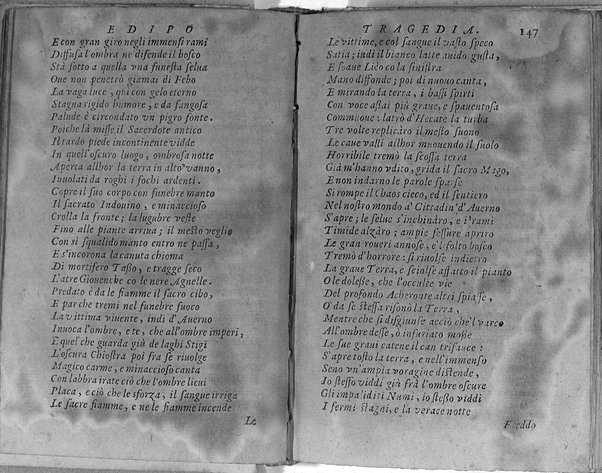 EDIPO
E con gran giro negli immensi rami
Diffusa l'ombra ne difende il bosco
Stà sotto a quella vna funesta selua
Oue non penetrò giamai di Febo
La vaga luce, qui con gelo eterno
Stagna rigido humore, e da fangosa
Palude è circondato vn pigro fonte.
Poiche là misse il Sacerdote antico
Il tardo piede incontinente vidde
In quell'oscuro luogo, ombrosa notte
Aperta allhor la terra in alto vanno,
Inuolati da roghi i fochi ardenti.
Copre il suo corpo con funebre manto
Il sacrato Indouino, e minaccioso
Crolla la fronte; la lugubre veste
Fino alle piante arriua; il mesto veglio
Con sì squalido manto entro ne passa,
E s'incorona la canuta chioma
Di mortifero Tasso, e tragge seco
L'atre Giouenche co le nere Agnelle.
Predato è da le fiamme il sacro cibo,
E par che tremi nel funebre fuoco
La vittima viuente, indi d'Auerno
Inuoca l'ombre, e te, che all'ombre imperi,
E quel che guarda giù de laghi Stigi
L'oscura Chiostra poi fra se riuolge
Magico carme, e minaccioso canta
Con labbra irate ciò che l'ombre lieui
Placa, e ciò che le sforza, il sangue irriga
Le sacre fiamme, e ne le fiamme incende
Le
TRAGEDIA. 147
Le vittime, e col sangue il vasto speco
Satia; indi il bianco latte auido gusta,
E soaue Lièo co la sinistra
Mano diffonde; poi di nuouo canta,
E mirando la terra, i bassi spirti
Con voce assai più graue, e spauentosa
Commuoue: latrò d'Hecate la turba
Tre volte replicàro il mesto suono
Le caue valli allhor muouendo il suolo
Horribile tremò la scossa terra
Già m'hanno vdito, grida il sacro Mago,
E non indarno le parole sparse
Si rompe il Chaos cieco, ed il sentiero
Nel nostro mondo a' Cittadin d'Auerno
S'apre; le selue s'inchinàro, e i rami
Timide alzàro; ampie fessure apriro
Le gran roueri annose, e'l folto bosco
Tremò d'horrore: si riuolse indietro
La graue Terra, e sciolse affatto il pianto
O le dolesse, che l'occulte vie
Del profondo Acheronte altri spiasse,
O da se stessa risonò la Terra,
Mentre che si disgiunse acciò che'l varco
All'ombre desse, ò infuriato mosse
Le sue graui catene il can trifauce:
S'apre tosto la terra, e nell'immenso
Seno vn'ampia voragine distende,
Io stesso viddi giù frà l'ombre oscure
Gl'impaliditi Numi, io stesso viddi
I fermi stagni, e la verace notte
Freddo